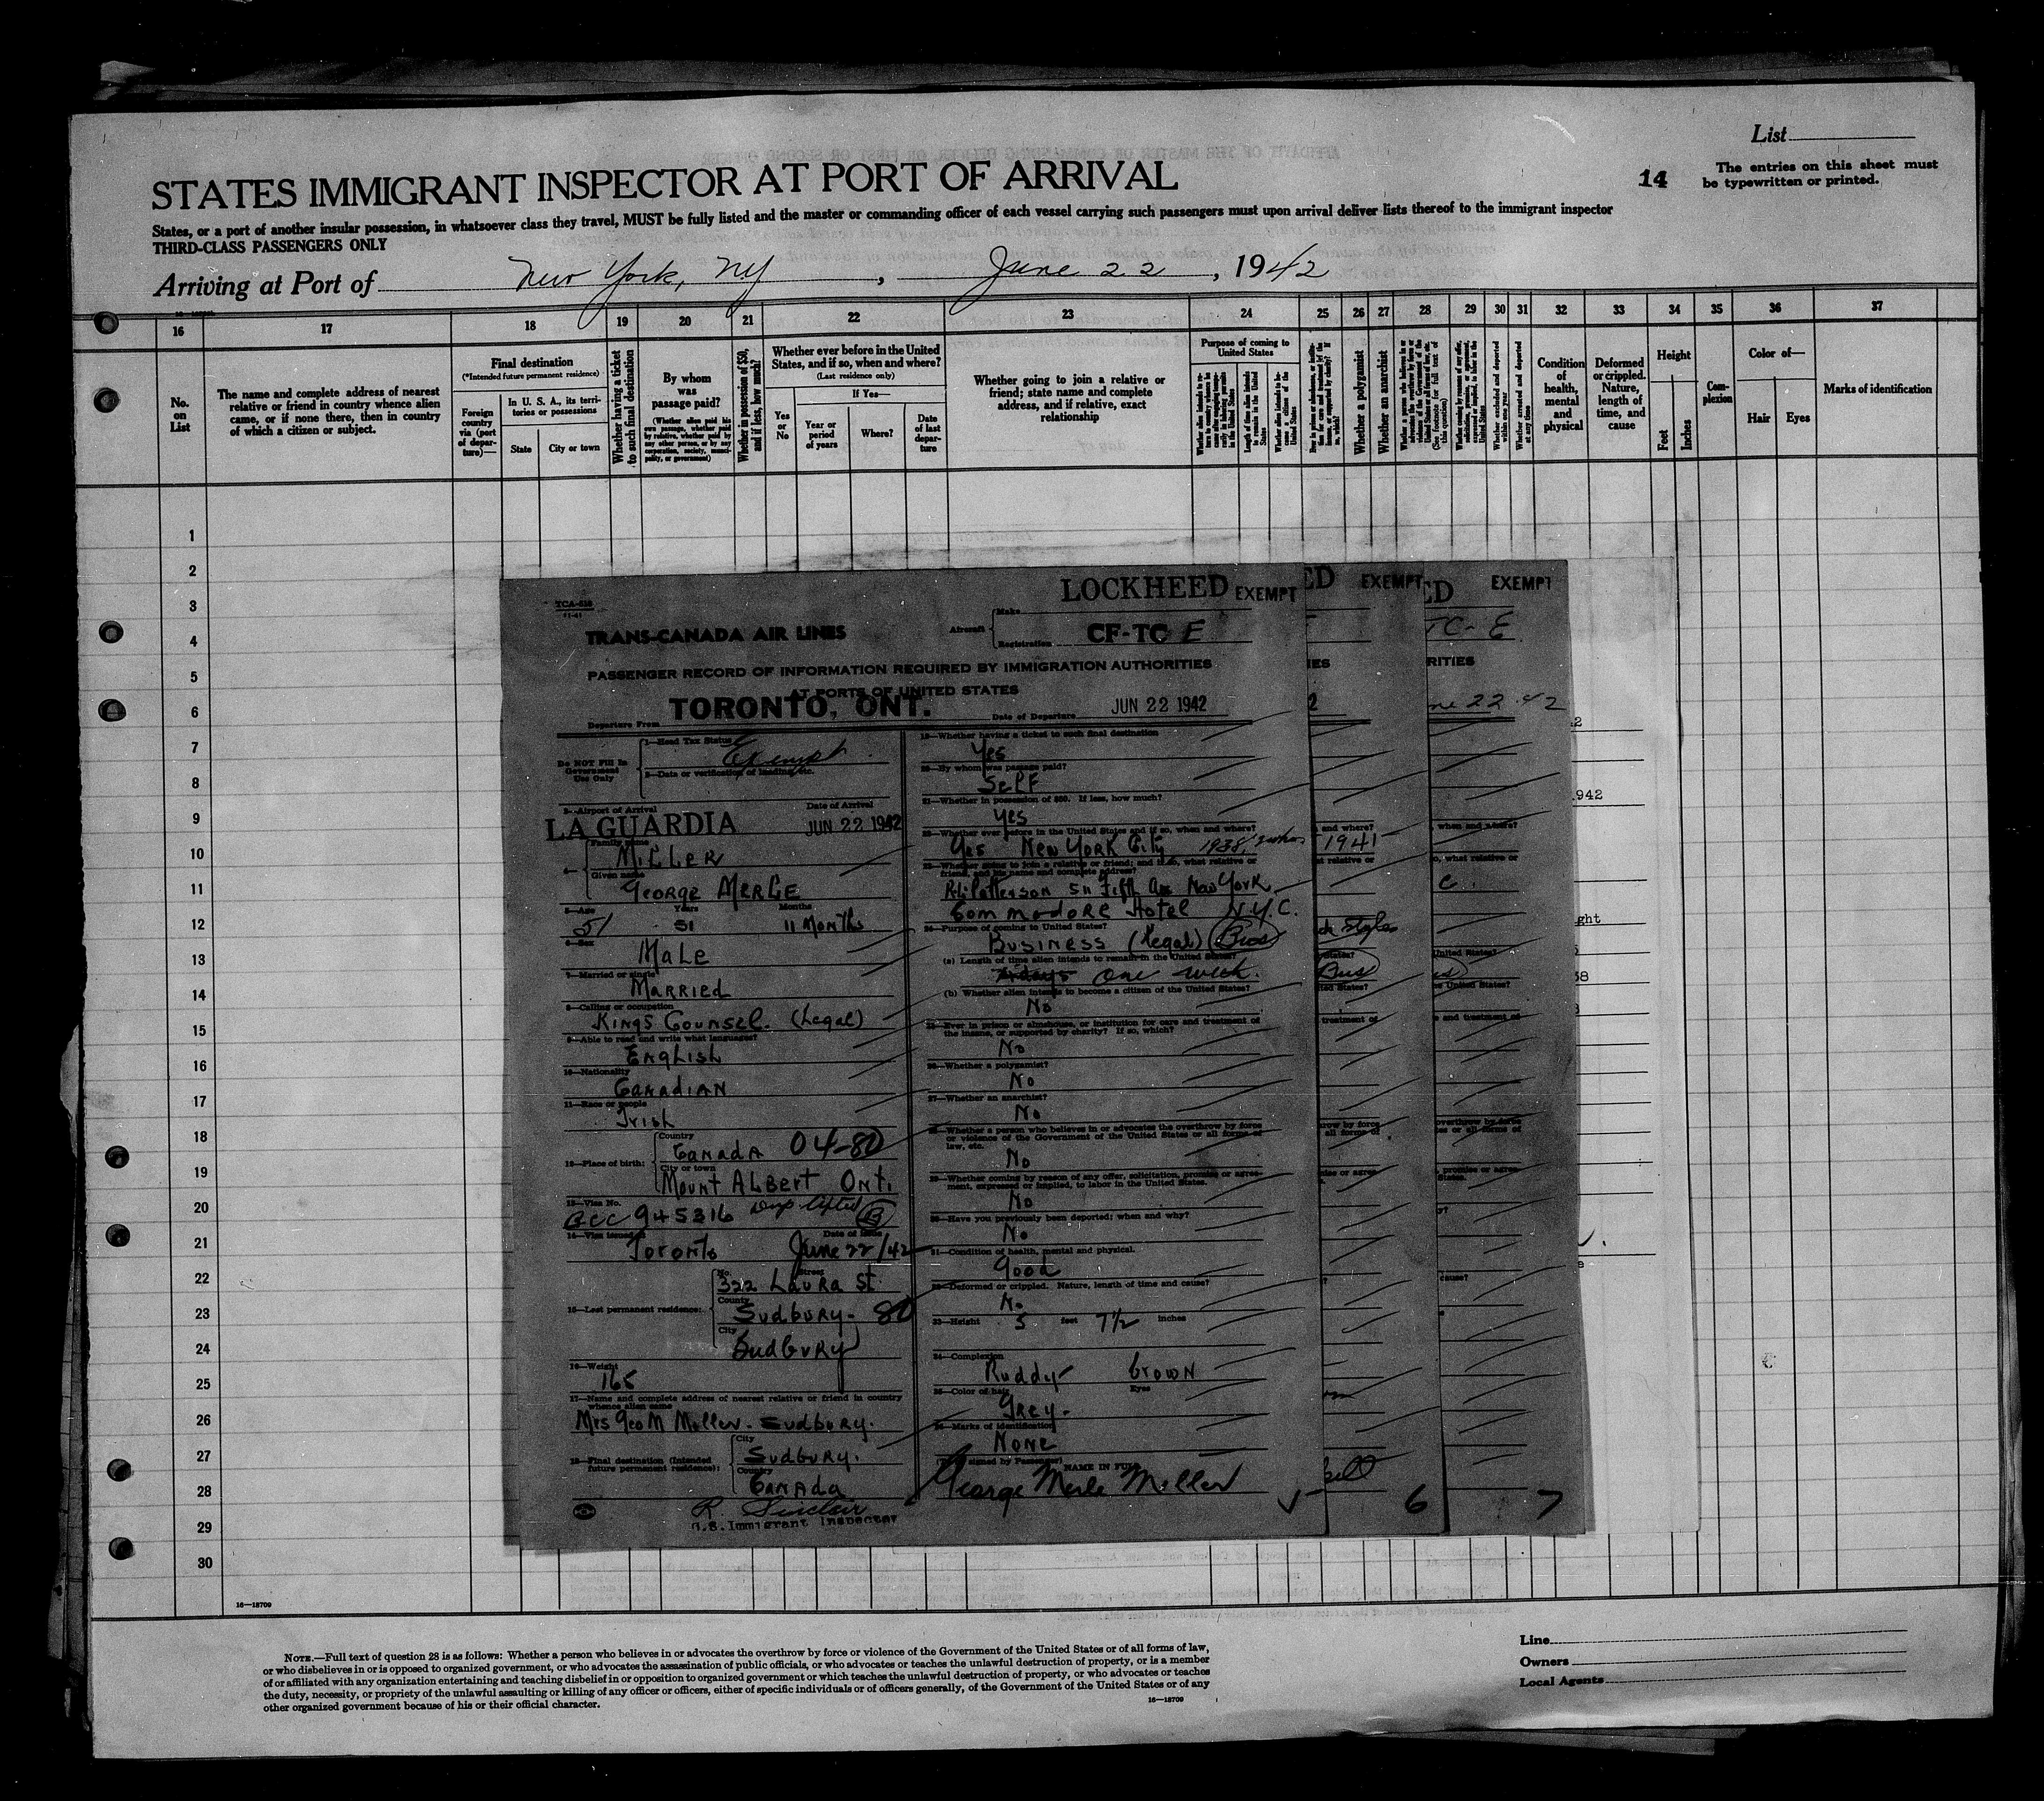 List
14
The entries on this sheet must
be typewritten or printed.
STATES IMMIGRANT INSPECTOR AT PORT OF ARRIVAL
States, or a port of another insular possession, in whatsoever class they travel, MUST be fully listed and the master or commanding officer of each vessel carrying such passengers must upon arrival deliver lists thereof to the immigrant inspector
THIRD-CLASS PASSENGERS ONLY
Arriving at Port of New York, NY, June 22, 1942
16 17 18 19 20 21 22 23 24 25 26 27 28 29 30 31 32 33 34 35 36 37
No. on List
The name and complete address of nearest
relative or friend in country whence alien
came, or if none there, then in country
of which a citizen or subject.
Final destination
(*Intended future permanent residence)
Foreign country via (port of departure)—
In U. S. A., its territories or possessions
State
City or town
Whether having a ticket to such final destination
By whom was passage paid?
(Whether alien paid his own passage, whether paid by relative, whether paid by any other person, or by any corporation, society, municipality, or government)
Whether in possession of $50, and if less, how much?
Whether ever before in the United
States, and if so, when and where?
(Last residence only)
Yes or No
If Yes—
Year or period of years
Where?
Date of last departure
Whether going to join a relative or
friend; state name and complete
address, and if relative, exact
relationship
Purpose of coming to United States
Length of time alien intends to remain in the United States
Whether alien intends to become a citizen of the United States
Whether a polygamist
Whether an anarchist
(See footnote for full text of this question)
Whether excluded and deported within one year
Whether arrested and deported at any time
Condition of health, mental and physical
Deformed or crippled. Nature, length of time, and cause
Height
Feet
Inches
Complexion
Color of—
Hair
Eyes
Marks of identification
1
2
3
4
5
6
7
8
9
10
11
12
13
14
15
16
17
18
19
20
21
22
23
24
25
26
27
28
29
30
16—18709
LOCKHEED EXEMPT
TRANS-CANADA AIR LINES
Aircraft
Make
Registration CF-TC E
PASSENGER RECORD OF INFORMATION REQUIRED BY IMMIGRATION AUTHORITIES
AT PORTS OF UNITED STATES
Departure From TORONTO, ONT.
Date of Departure JUN 22 1942
Do NOT Fill In Government Use Only
1—Head Tax Status Exempt
2—Data or verification of landing, etc.
3—Airport of Arrival LA GUARDIA
Date of Arrival JUN 22 1942
Family name MILLER
Given name GEORGE MERLE
5—Age 51 Years 51 Months 11 Months
6—Sex Male
7—Married or single Married
8—Calling or occupation Kings Counsel. (Legal)
9—Able to read and write what languages? English
10—Nationality Canadian
11—Race or people Irish
12—Place of birth:
Country Canada 04-80
City or town Mount Albert Ont.
13—Visa No. 945316
14—Visa issued at Toronto
Date of Issue June 22/42
15—Last permanent residence:
No. Street 322 Laura St
County Sudbury- 80
City Sudbury
16—Weight 165
17—Name and complete address of nearest relative or friend in country
whence alien came
Mrs Geo M Miller. Sudbury.
18—Final destination (Intended
future permanent residence):
City Sudbury.
Country Canada
R. Sinclair
U.S. Immigrant Inspector
19—Whether having a ticket to such final destination
Yes
20—By whom was passage paid?
Self
21—Whether in possession of $50. If less, how much?
Yes
22—Whether ever before in the United States and if so, when and where?
Yes New York City 1938
23—Whether going to join a relative or friend; and if so, what relative or
friend, and his name and complete address?
Patterson 511 Fifth Ave New York
Commodore Hotel N.Y.C.
24—Purpose of coming to United States?
Business (Legal) Bus
(a) Length of time alien intends to remain in the United States?
one week.
(b) Whether alien intends to become a citizen of the United States?
No
25—Ever in prison or almshouse, or institution for care and treatment of
the insane, or supported by charity? If so, which?
No
26—Whether a polygamist?
No
27—Whether an anarchist?
No
28—Whether a person who believes in or advocates the overthrow by force
or violence of the Government of the United States or all forms of
law, etc.
No
29—Whether coming by reason of any offer, solicitation, promise or agree-
ment, expressed or implied, to labor in the United States.
No
30—Have you previously been deported; when and why?
No
31—Condition of health, mental and physical.
Good
32—Deformed or crippled. Nature, length of time and cause?
No
33—Height 5 feet 7½ inches
34—Complexion Ruddy
Eyes Brown
35—Color of hair
Grey.
36—Marks of identification
None
NAME IN FULL
George Merle Miller
EXEMPT
EXEMPT
TC-E
June 22.42
1941
Bus
6
7
NOTE.—Full text of question 28 is as follows: Whether a person who believes in or advocates the overthrow by force or violence of the Government of the United States or of all forms of law,
or who disbelieves in or is opposed to organized government, or who advocates the assassination of public officials, or who advocates or teaches the unlawful destruction of property, or is a member
of or affiliated with any organization entertaining and teaching disbelief in or opposition to organized government or which teaches the unlawful destruction of property, or who advocates or teaches
the duty, necessity, or propriety of the unlawful assaulting or killing of any officer or officers, either of specific individuals or of officers generally, of the Government of the United States or of any
other organized government because of his or their official character.
16—18709
Line
Owners
Local Agents